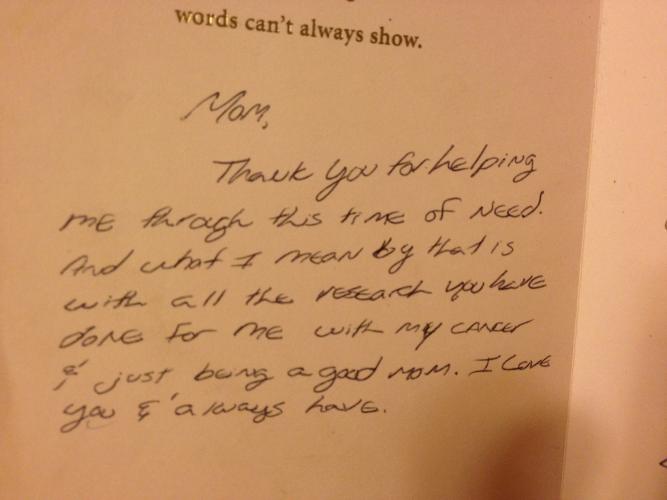 words can't always show.
Mom,
Thank you for helping
me through this time of need.
And what I mean by that is
with all the research you have
done for me with my cancer
& just being a good mom. I Love
you & always have.